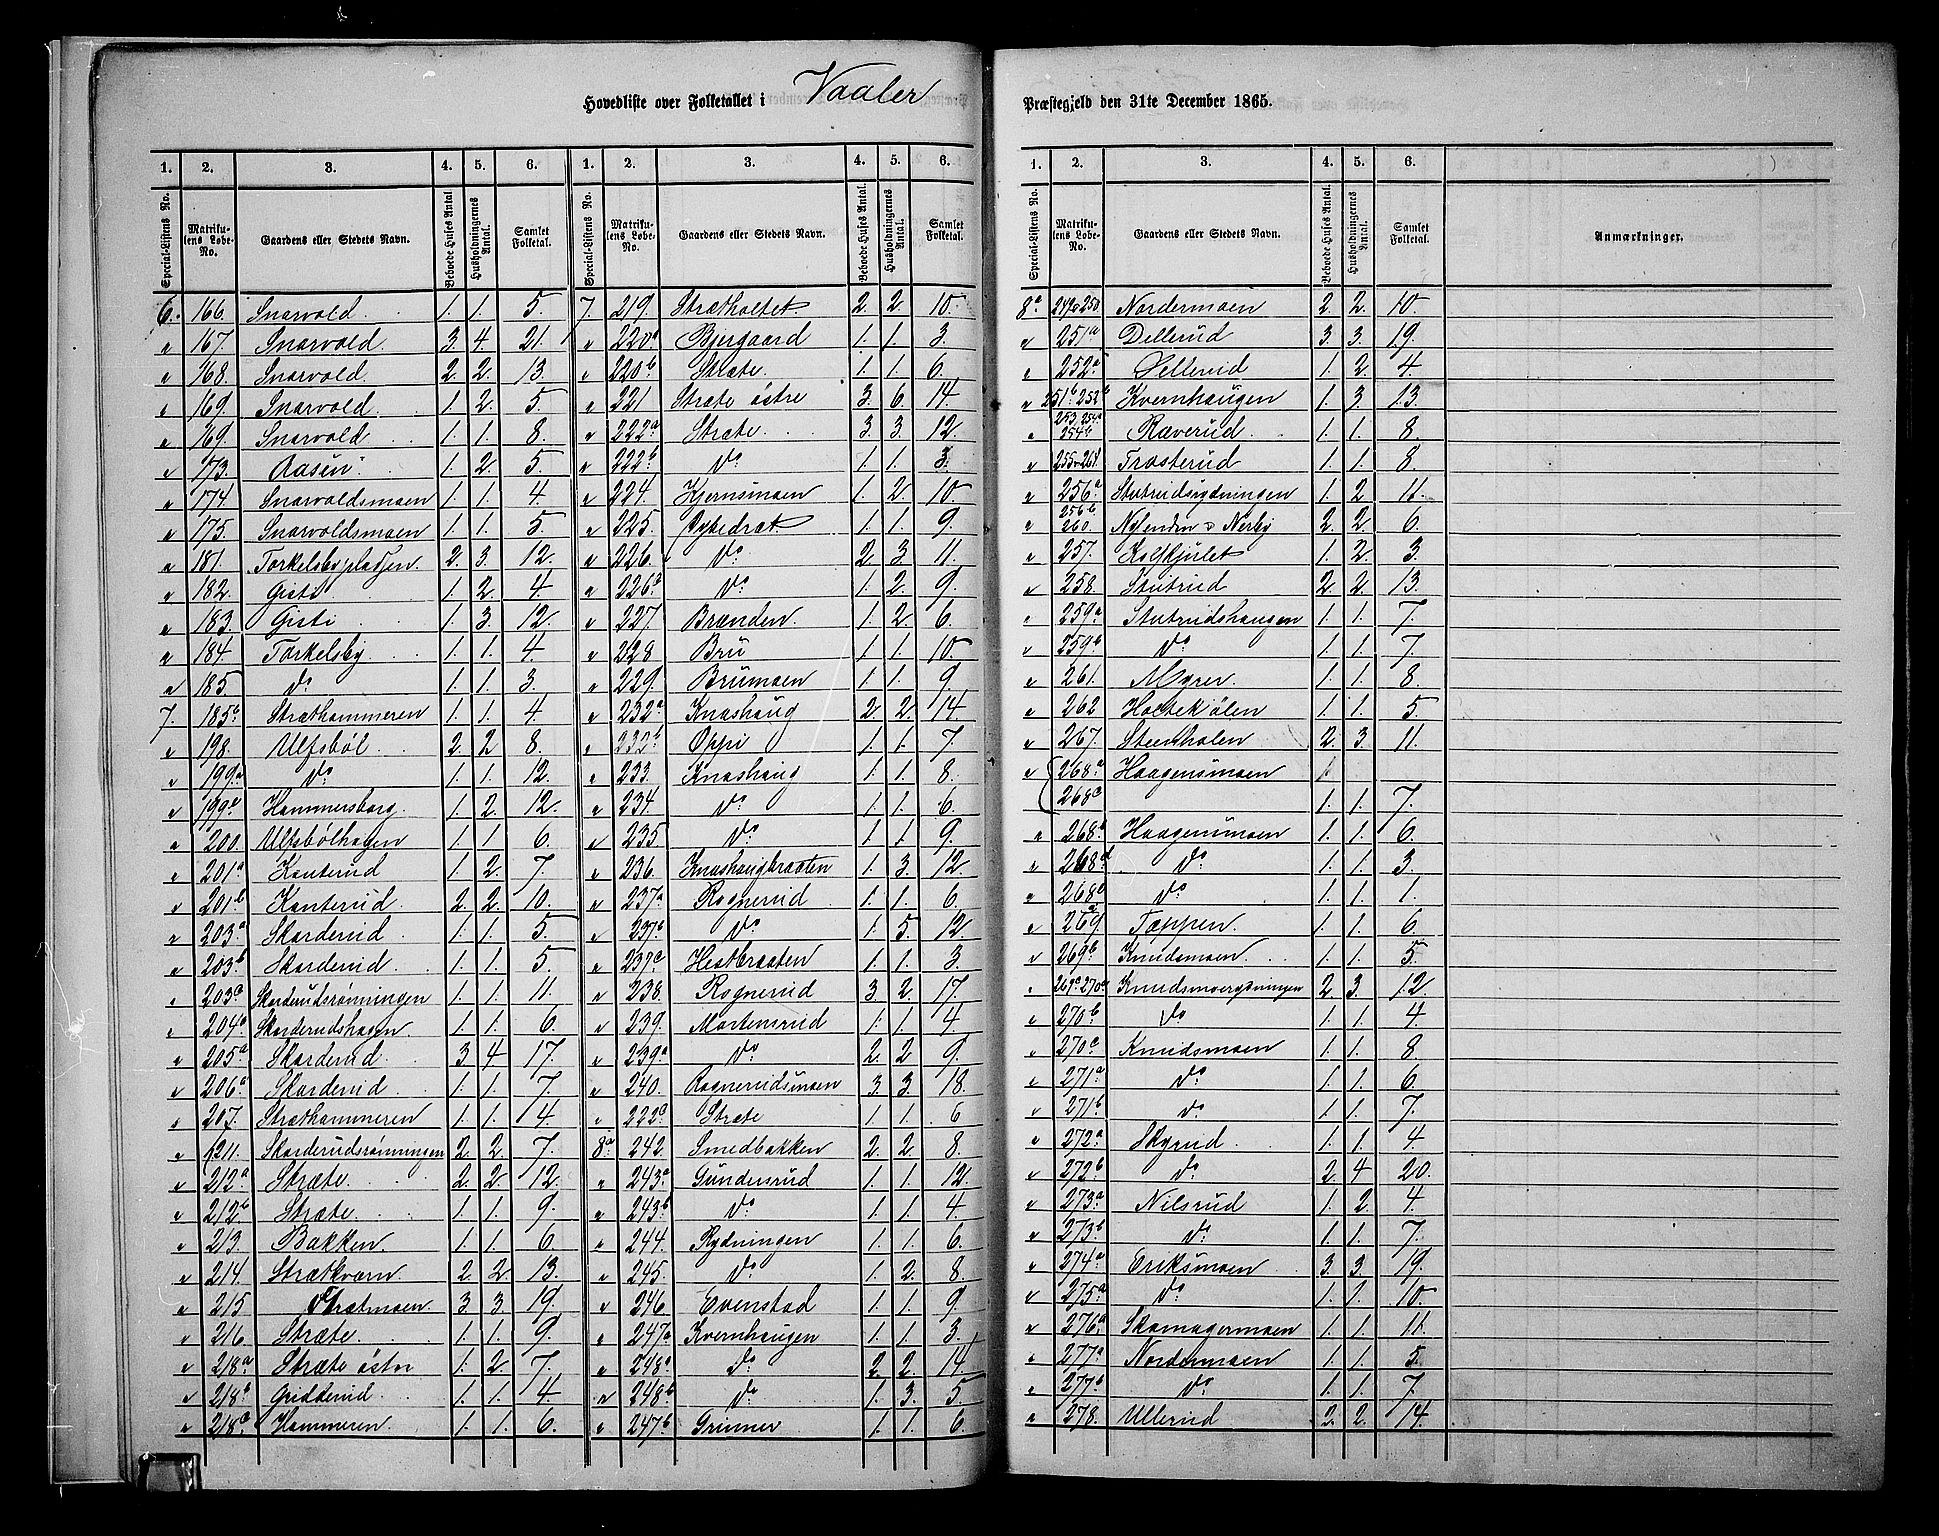 Hovedliste over Folketallet i Vaaler
Præstegjeld den 31te December 1865.
1. 2. 3. 4. 5. 6. 1. 2. 3. 4. 5. 6.
Special-Listens No. Matrikulens Løbe-No. Gaardens eller Stedets Navn. Beboede Huses Antal Husholdningernes Antal. Samlet Folketal. Special-Listens No. Matrikulens Løbe-No. Gaardens eller Stedets Navn. Beboede Huses Antal. Husholdningernes Antal. Samlet Folketal.
6. 166. Snarvold 1. 1. 5.
" 167. Snarvold. 3 4. 21.
" 168. Snarvold. 2. 2. 13.
" 169. Snarvold. 1. 2. 5.
" 169. Snarvold 1. 1. 8.
" 173. Aasen 1. 2. 5.
" 174. Snarvoldsmoen 1. 1. 4.
" 175. Snarvoldsmoen 1. 1. 5.
" 181. Torkelsbypladsen. 2. 3. 12.
" 182. Gisti 1. 2. 4.
" 183. Gisti 1. 3. 12.
" 184. Torkelsby. 1. 1. 4.
" 185. do 1. 1. 3.
7. 185b. Stræthammeren 1. 1. 4.
" 198. Ulfsböl 2. 2 8.
" 199a. do 1. 1. 12.
" 199 Hammersborg. 1. 2. 12.
" 200. Ulfsbölhagen 1. 1 6.
" 201a Kanterud 1. 2. 7.
" 201b Kanterud. 2. 2. 10.
" 203a Skarderud 1. 1. 5.
" 203b Skarderud. 1. 1. 5.
" 203c Skarderudsrönningen 1. 1. 11.
" 204 Skarderudshagen 1. 1. 6.
" 205a Skarderud. 3 4 17.
" 206a Skarderud 1. 1. 7.
" 207. Stræthammeren 1. 1. 4.
" 211. Skarderudsrönningen 2. 2. 7.
" 212a Stræte. 2. 2. 12.
" 212b Stræte. 1. 1. 9.
" 213. Bakken. 1. 1. 6.
" 214. Strætkværn. 2. 2. 13.
" 215 Strætmoen. 3. 3. 19.
" 216. Stræte. 1. 1. 9.
" 218a Stræte östre 1. 2. 7.
" 218b Gredderud 1. 1. 4.
" 218c Hammeren. 1. 1. 6.
7. 219. Strætholtet 2. 2. 10.
" 220a Bjergaard 1. 1. 3.
" 220b Stræte. 1. 1. 6.
" 221 Stræte östre 3. 6. 14.
" 222a Stræte. 3. 3. 12.
" 222b do 1. 1. 3.
" 224. Kjernsmoen 1. 2. 10.
" 225. 1. 1. 9.
" 226. do 2. 3. 11.
" 226a do 1. 2. 9.
" 227. Brænden. 1. 2. 6.
" 228 Bru 1. 1. 10.
" 229. Brumoen 1. 1. 9.
" 232a Knashaug 2. 2. 14.
" 232b Oppi 1. 1. 7.
" 233. Knashaug 1. 1. 8.
" 234. do 1. 1. 6.
" 235 do 1. 1. 9.
" 236. Knashaugbraaten 1. 3. 12.
" 237a Rognerud 1. 1. 6.
" 237b do 1. 5. 12.
" 237c Hestbraaten 1. 1. 3.
" 238. Rognerud 3. 2. 17.
" 239. Mortensrud 1. 1. 4.
" 239a do 2. 2 9.
" 240. Rognerudsmoen 3. 3. 18.
" 222c Stræte 1. 1. 6
8a 242. Smedbakken 2. 2. 8.
" 243a Gundersrud 1. 1. 12.
" 243b do 1. 1. 4.
" 244. Rydningen 1. 1. 6.
" 245. do 1. 2. 8.
" 246. Evenstad 1. 1. 9.
" 247a Kvernhaugen 1. 1. 3.
" 248a do 2. 2. 14.
" 248b do 1. 3. 5.
" 247b Grinner 1. 1. 6.
1. 2. 3. 4. 5. 6.
Special-Listens No. Matrikulens Løbe-No. Gaardens eller Stedets Navn. Beboede Huses Antal. Husholdningernes Antal. Samlet Folketal. Anmærkninger.
8a 249 250 Nordermoen 2. 2. 10.
" 251a Dellerud 3. 3. 19.
" 252a Dellerud 1. 2. 4.
" 251b 252b Kvernhaugen 1. 3. 13.
" 253. 254a 254b Ræverud. 1. 1. 8.
" 255 264 Trosterud 1. 1. 8.
" 256a Stutrudsrydningen 1. 2 11.
" 256b 260. Nylenden & Nerby 2. 2. 6.
" 257. 1. 2. 3.
" 258. Stutrud 2. 2. 13.
" 259a Stutrudshaugen 1. 1. 7.
" 259b do 1. 1. 7.
" 261. Myrer 1. 1. 8.
" 262 Holtekölen 1. 1. 5.
" 267. Steenholen 2. 3. 11.
" 268a Haagensmoen 1
268c 1. 1. 7.
" 268a Haagensmoen 1. 1. 6.
" 268d do 1. 1. 3.
" 268 do 1. 1. 1.
" 269a Tappen. 1. 1. 6.
" 269b Knudsmoen. 1. 1. 5.
" 269c 270a Knudsmoerydningen 2. 3. 12.
" 270b do 1. 1. 4.
" 270c Knudsmoen 1. 1. 8.
" 271a do 1. 1. 6.
" 271b do 1. 1. 7.
" 272a Skyrud. 1. 1. 4.
" 272b do 2. 4 20.
" 273a Nilsrud 1. 2. 4.
" 273b do 1. 1. 7.
" 274a Eriksmoen 3. 3. 19.
" 275a do 1. 1. 10.
" 276a Skomagermoen 1. 1. 11.
" 277a Nordermoen 1. 1. 5.
" 277b do 1. 1. 7.
" 278. Ullerud 2. 2. 14.